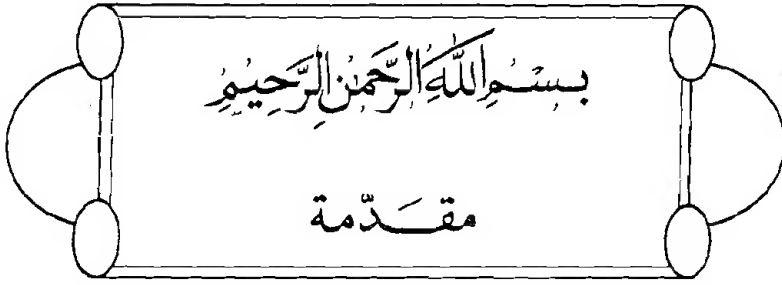 بِسْمِ اللَّهِ الرَّحْمَنِ الرَّحِيمِ
مقدّمة